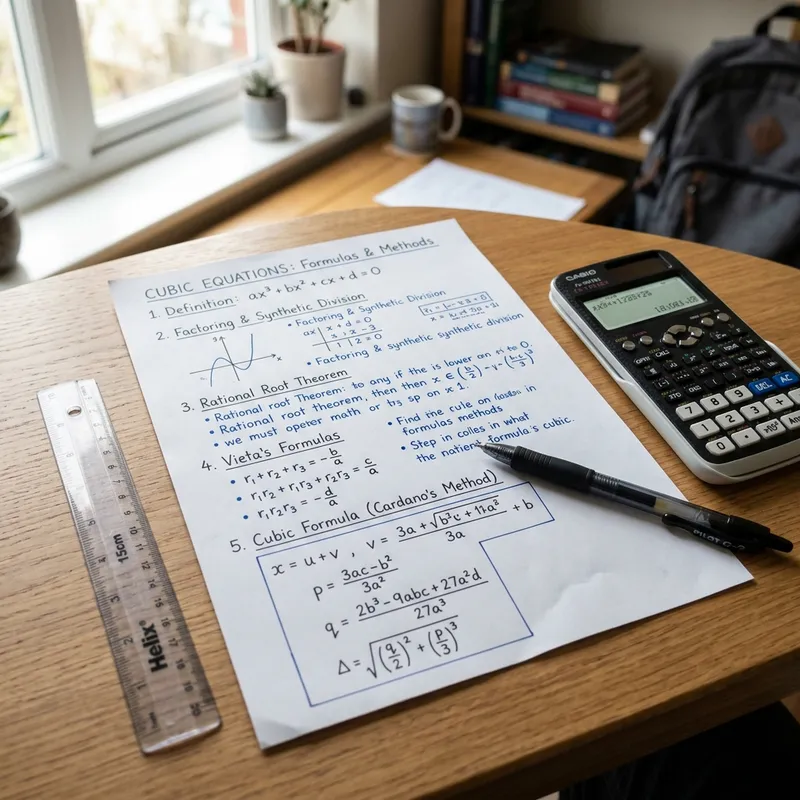 CUBIC EQUATIONS: Formulas & Methods
1. Definition: ax³ + bx² + cx + d = 0
2. Factoring & Synthetic Division
• Factoring & Synthetic Division
• Factoring & synthetic synthetic division
y
x
3. Rational Root Theorem
• Rational root Theorem: to any if the is lower an to 0.
• Rational root theorem, then then x ∈ (b/2) - (bc/3)³
• we must opeter math or bs sp on x 1.
• Find the rule on in
formulas methods
• Step in colles in what
the natien formula's cubic.
4. Vieta's Formulas
• r₁ + r₂ + r₃ = -b/a
• r₁r₂ + r₁r₃ + r₂r₃ = c/a
• r₁r₂r₃ = -d/a
5. Cubic Formula (Cardano's Method)
x = u + v , v = (3a + √(b²c + 11a²))/3a + b
p = (3ac - b²)/3a²
q = (2b³ - 9abc + 27a²d)/27a³
Δ = √((q/2)² + (p/3)³)
15cm
Helix
CASIO
DEL AC
7 8 9
4 5 6
1 2 3
0
PILOT